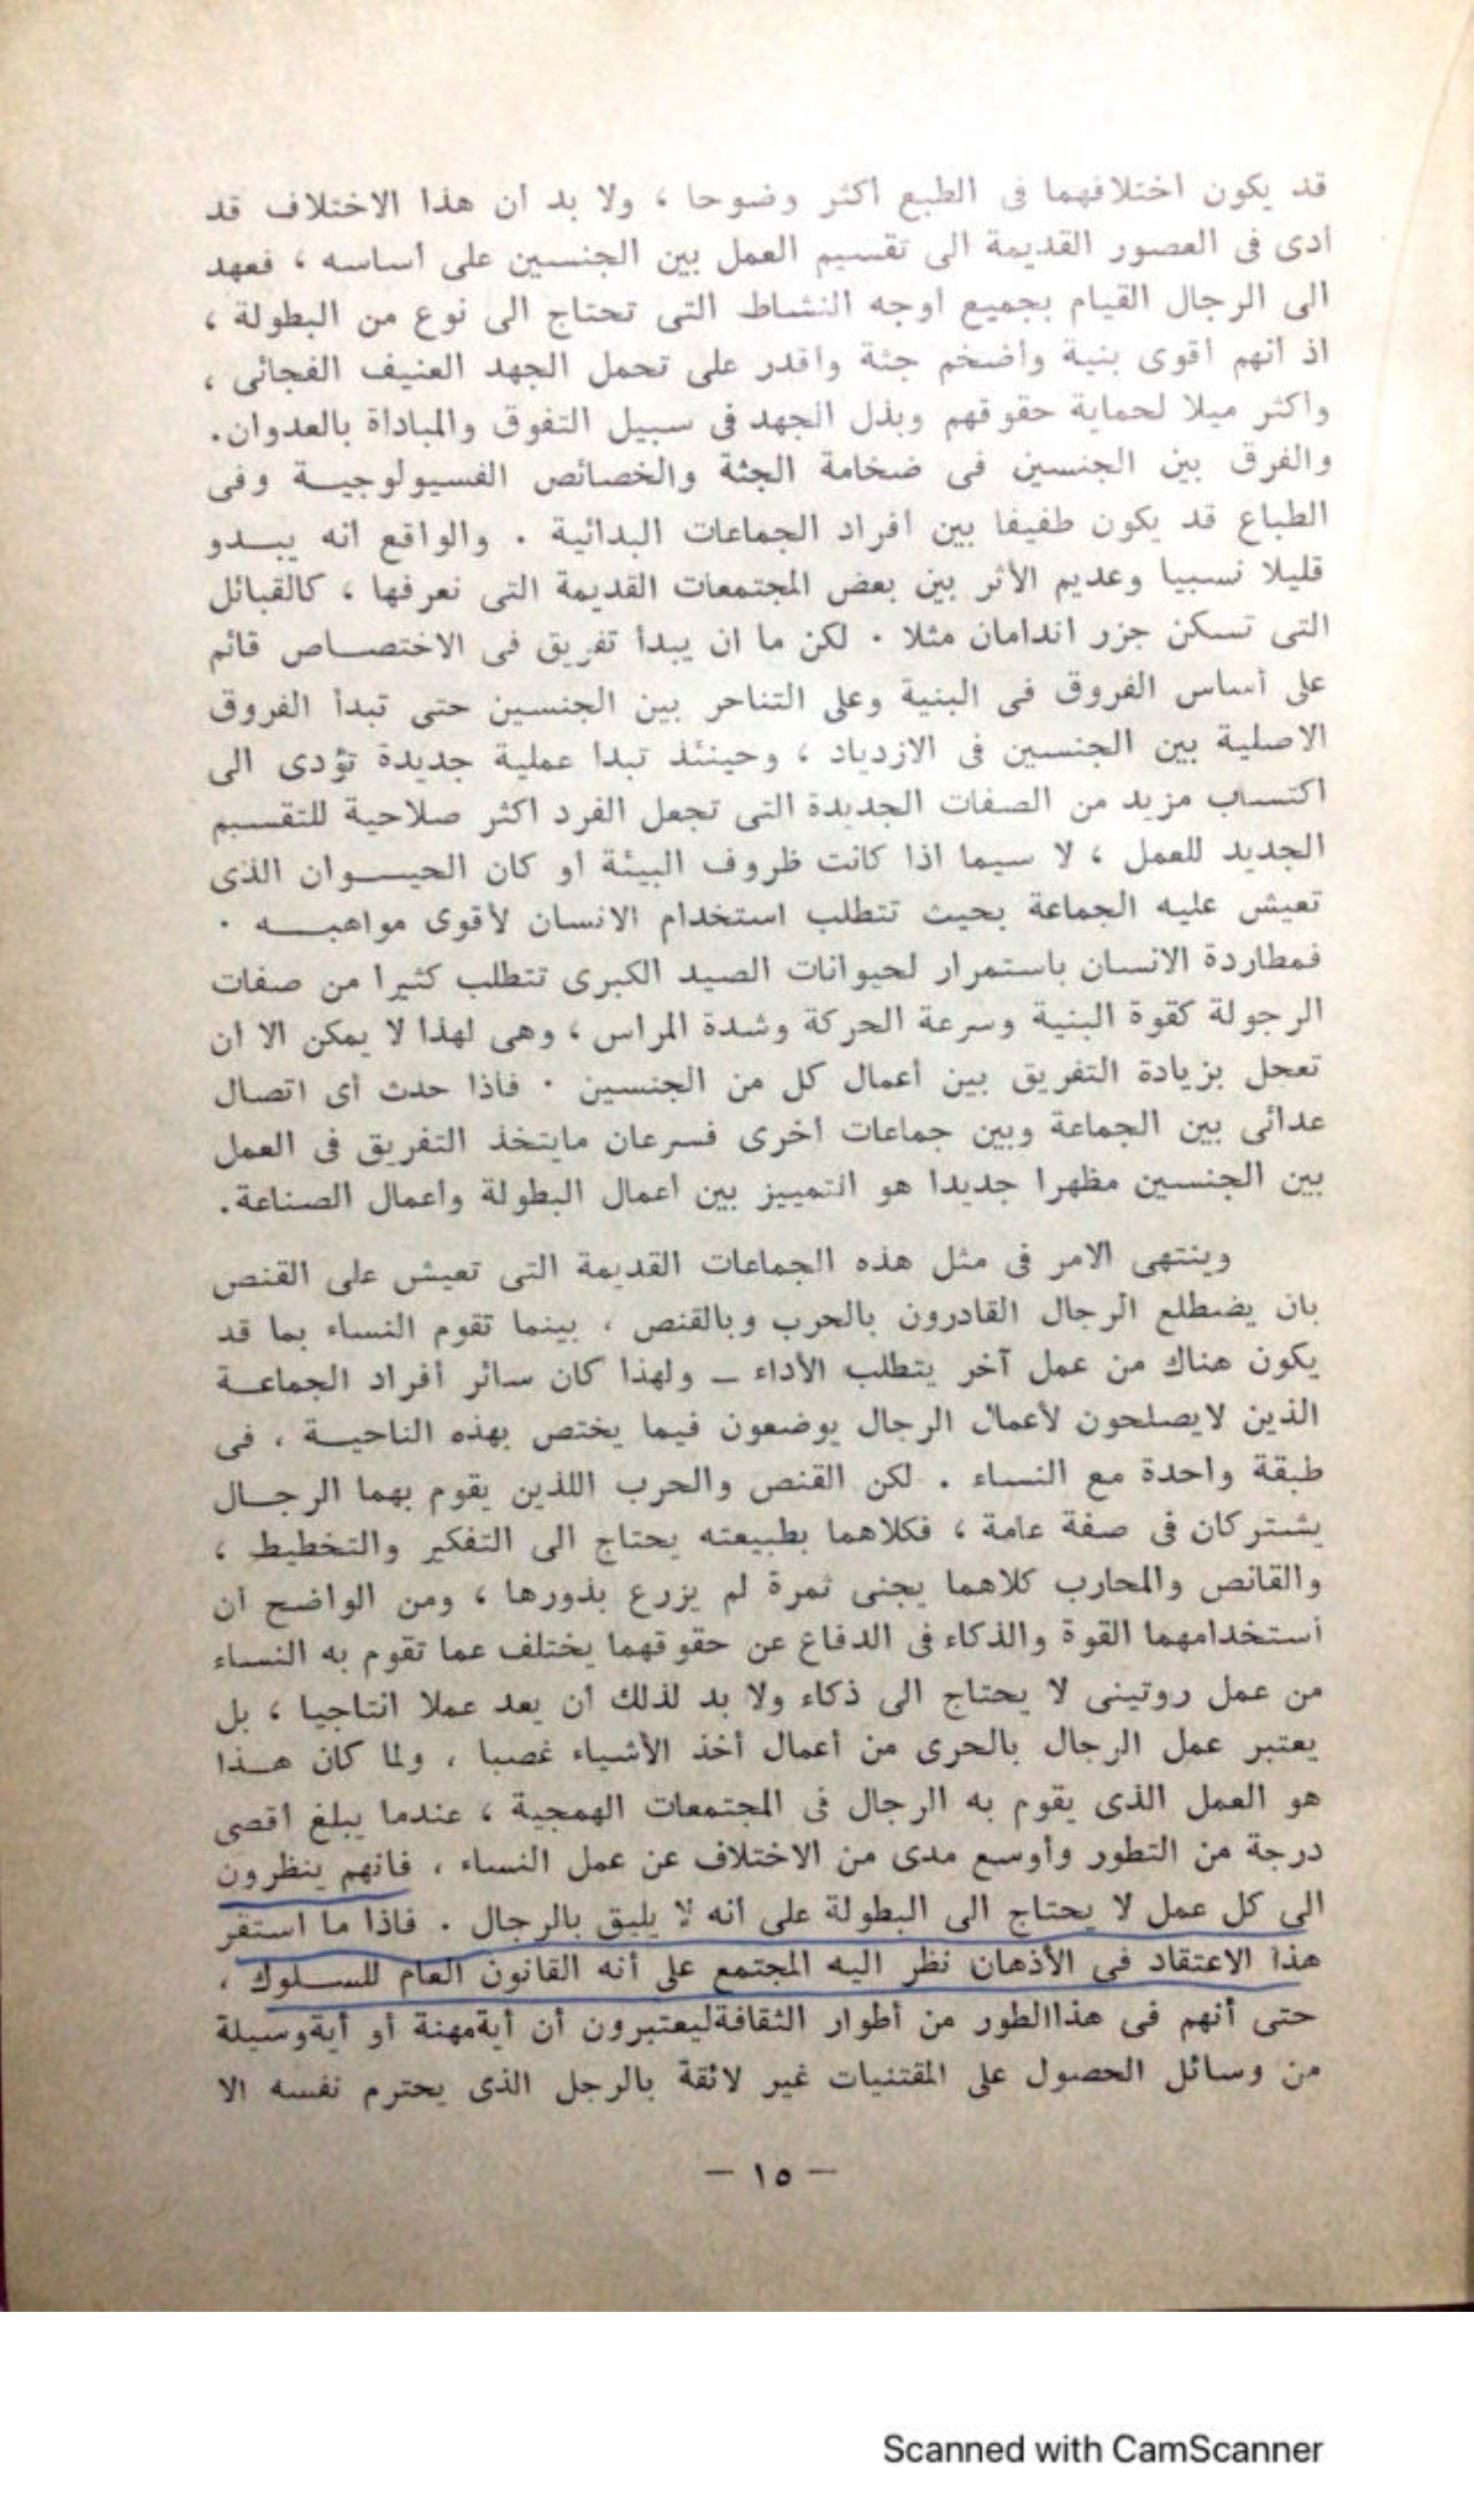 قد يكون اختلافهما فى الطبع اكثر وضوحا ، ولا بد ان هذا الاختلاف قد
ادى فى العصور القديمة الى تقسيم العمل بين الجنسين على اساسه ، فعهد
الى الرجال القيام بجميع اوجه النشاط التى تحتاج الى نوع من البطولة ،
اذ انهم اقوى بنية واضخم جثة واقدر على تحمل الجهد العنيف الفجائى ،
واكثر ميلا لحماية حقوقهم وبذل الجهد فى سبيل التفوق والمباداة بالعدوان.
والفرق بين الجنسين فى ضخامة الجثة والخصائص الفسيولوجيــة وفى
الطباع قد يكون طفيفا بين افراد الجماعات البدائية . والواقع انه يبــدو
قليلا نسبيا وعديم الأثر بين بعض المجتمعات القديمة التى نعرفها ، كالقبائل
التى تسكن جزر اندامان مثلا . لكن ما ان يبدأ تفريق فى الاختصــاص قائم
على أساس الفروق فى البنية وعلى التناحر بين الجنسين حتى تبدأ الفروق
الاصلية بين الجنسين فى الازدياد ، وحينئذ تبدا عملية جديدة تؤدى الى
اكتساب مزيد من الصفات الجديدة التى تجعل الفرد اكثر صلاحية للتقسيم
الجديد للعمل ، لا سيما اذا كانت ظروف البيئة او كان الحيــوان الذى
تعيش عليه الجماعة بحيث تتطلب استخدام الانسان لأقوى مواهبــه .
فمطاردة الانسان باستمرار لحيوانات الصيد الكبرى تتطلب كثيرا من صفات
الرجولة كقوة البنية وسرعة الحركة وشدة المراس ، وهى لهذا لا يمكن الا ان
تعجل بزيادة التفريق بين أعمال كل من الجنسين . فاذا حدث أى اتصال
عدائى بين الجماعة وبين جماعات اخرى فسرعان مايتخذ التفريق فى العمل
بين الجنسين مظهرا جديدا هو التمييز بين اعمال البطولة واعمال الصناعة.
وينتهى الامر فى مثل هذه الجماعات القديمة التى تعيش على القنص
بان يضطلع الرجال القادرون بالحرب وبالقنص ، بينما تقوم النساء بما قد
يكون هناك من عمل آخر يتطلب الأداء – ولهذا كان سائر أفراد الجماعــة
الذين لايصلحون لأعمال الرجال يوضعون فيما يختص بهذه الناحيــة ، فى
طبقة واحدة مع النساء . لكن القنص والحرب اللذين يقوم بهما الرجــال
يشتركان فى صفة عامة ، فكلاهما بطبيعته يحتاج الى التفكير والتخطيط ،
والقانص والمحارب كلاهما يجنى ثمرة لم يزرع بذورها ، ومن الواضح ان
أستخدامهما القوة والذكاء فى الدفاع عن حقوقهما يختلف عما تقوم به النساء
من عمل روتينى لا يحتاج الى ذكاء ولا بد لذلك ان يعد عملا انتاجيا ، بل
يعتبر عمل الرجال بالحرى من أعمال أخذ الأشياء غصبا ، ولما كان هــذا
هو العمل الذى يقوم به الرجال فى المجتمعات الهمجية ، عندما يبلغ اقصى
درجة من التطور وأوسع مدى من الاختلاف عن عمل النساء ، فانهم ينظرون
الى كل عمل لا يحتاج الى البطولة على انه لا يليق بالرجال . فاذا ما استقر
هذا الاعتقاد فى الأذهان نظر اليه المجتمع على أنه القانون العام للســلوك ،
حتى أنهم فى هذاالطور من أطوار الثقافةليعتبرون أن أيةمهنة أو أيةوسيلة
من وسائل الحصول على المقتنيات غير لائقة بالرجل الذى يحترم نفسه الا
– ١٥ –
Scanned with CamScanner